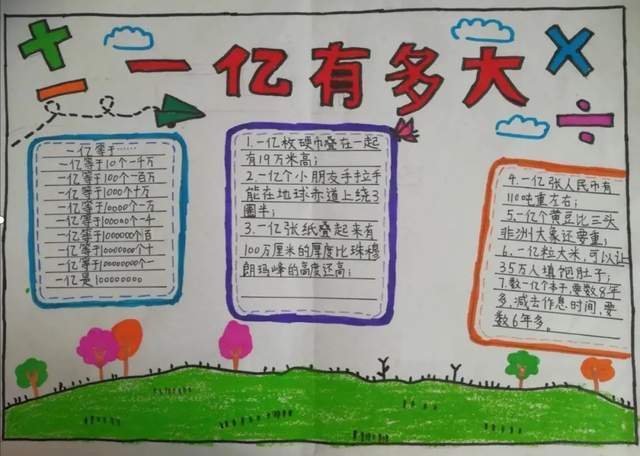 一亿有多大
一亿等于……
一亿等于10个一千万
一亿等于100个一百万
一亿等于1000个十万
一亿等于10000个一万
一亿等于100000个一千
一亿等于1000000个百
一亿等于10000000个十
一亿等于100000000个一
一亿是100000000
1.一亿枚硬币叠在一起
有19万米高;
2.一亿个小朋友手拉手
能在地球赤道上绕3
圈半;
3.一亿张纸叠起来有
100万厘米的厚度比珠穆
朗玛峰的高度还高;
4.一亿张人民币有
110吨重左右;
5.一亿个黄豆比三头
非洲大象还要重;
6.一亿粒大米,可以让
35万人填饱肚子;
7.数一亿个本子,要数8年
多,减去作息时间,要
数6年多。